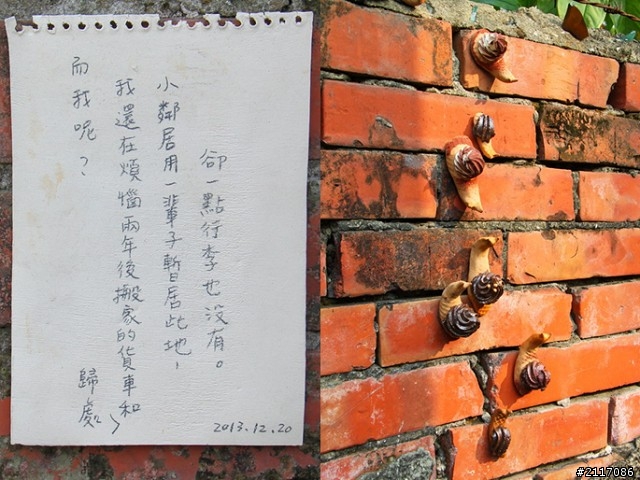 而我呢?
我還在煩惱兩年後搬家的貨車和~
歸處
小鄰居用一輩子暫居此地,
卻一點行李也沒有。
2013.12.20
#2117086